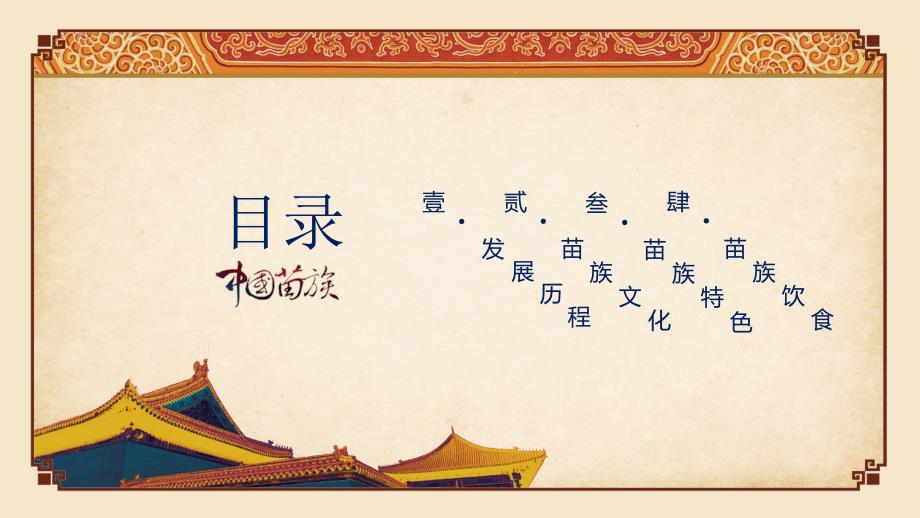 目录
中國苗族
壹·发展历程
贰·苗族文化
叁·苗族特色
肆·苗族饮食